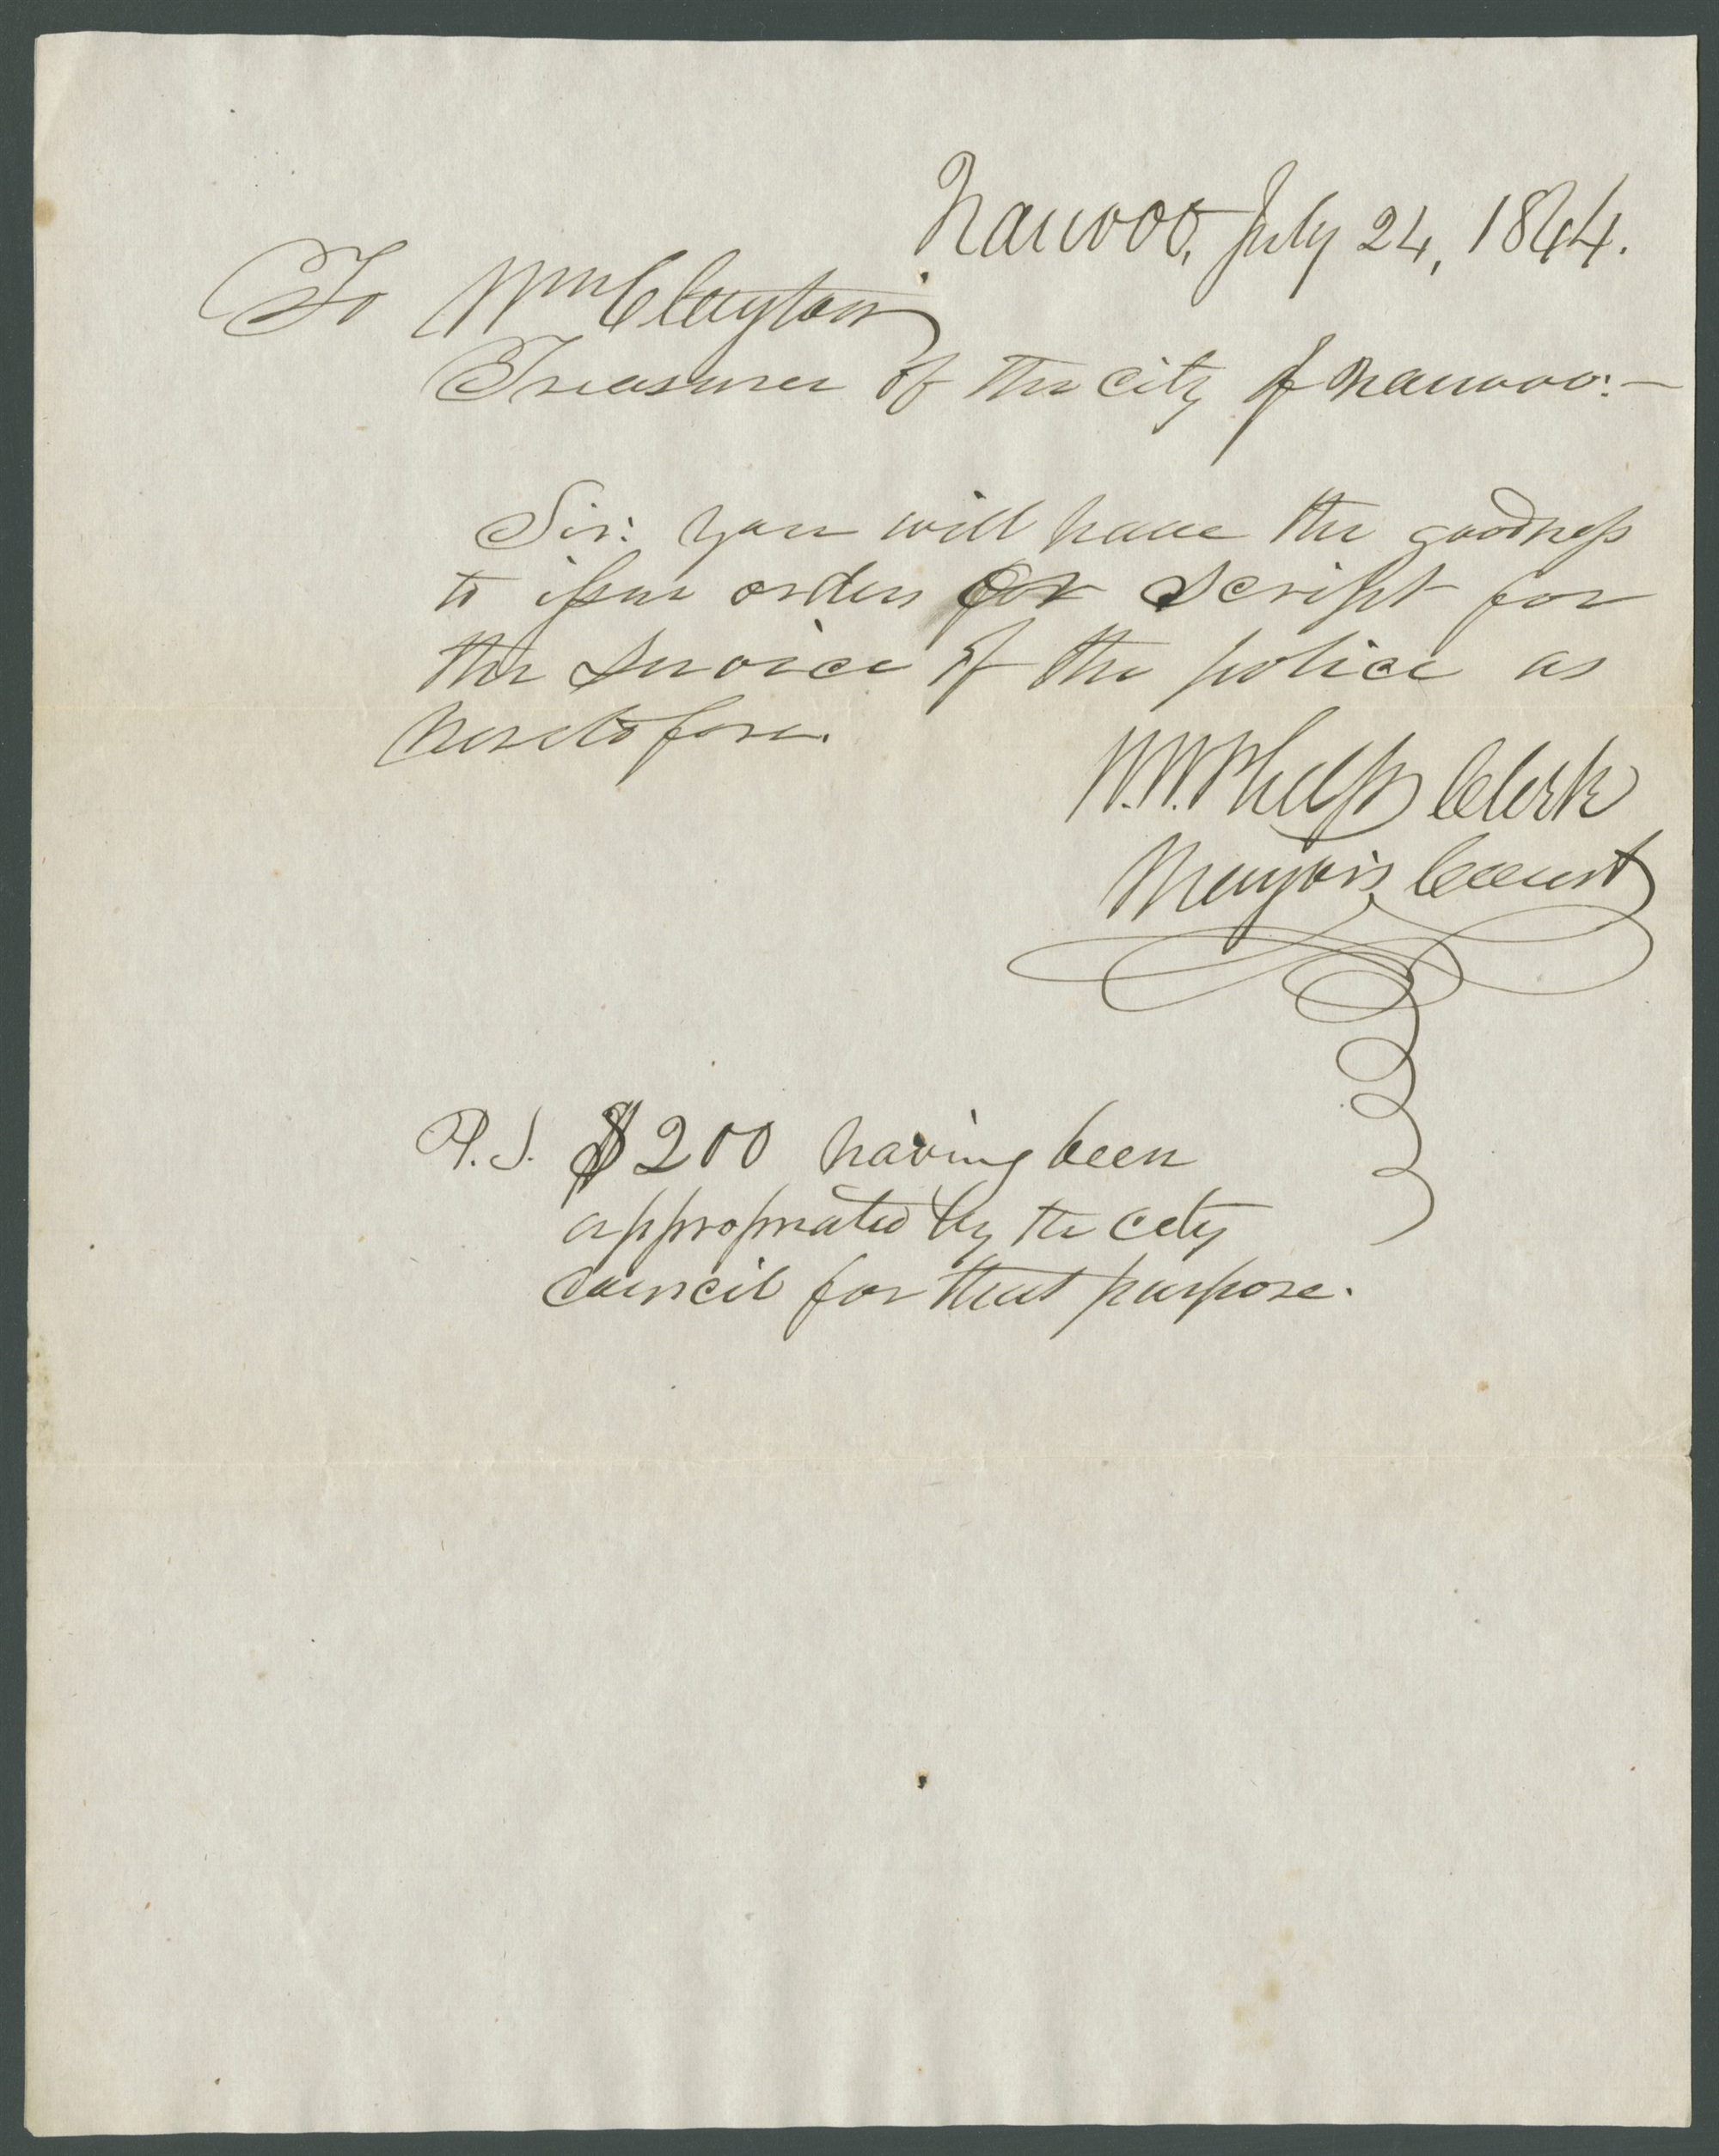 Nauvoo, July 24, 1844.
To Wm Clayton
Treasurer of the city of Nauvoo:—
Sir: you will have the goodness
to issue orders or script for
the service of the police as
heretofore.
W. W. Phelps Clerk
Mayor's Court
P.S. $200 having been
appropriated by the city
council for that purpose.